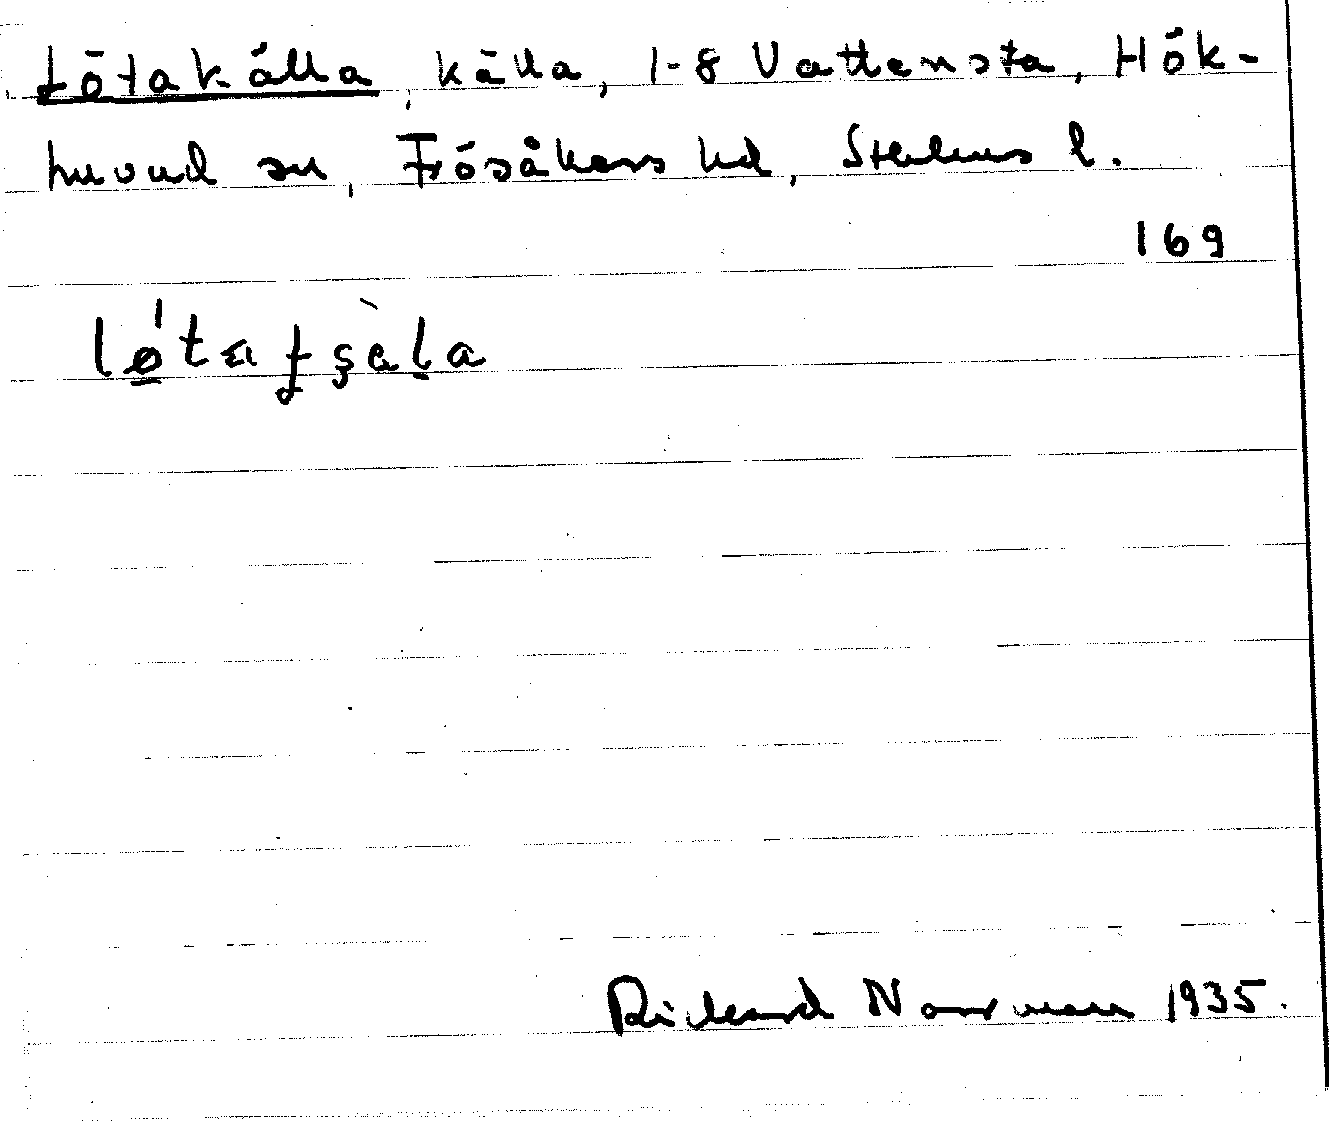 Lötakälla, källa, 1-8 Vattensta, Hök-
huvud sn, Frösåkers hd, Sthlms l.
169
Rickard Norrman 1935.